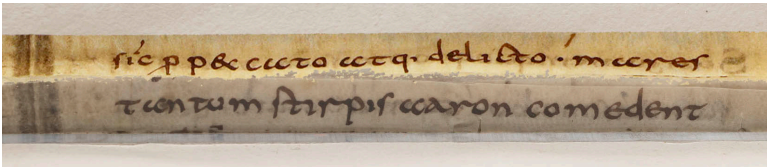 sic p p&ccato atq. delicto . mares
tantum stirpis aaron comedent